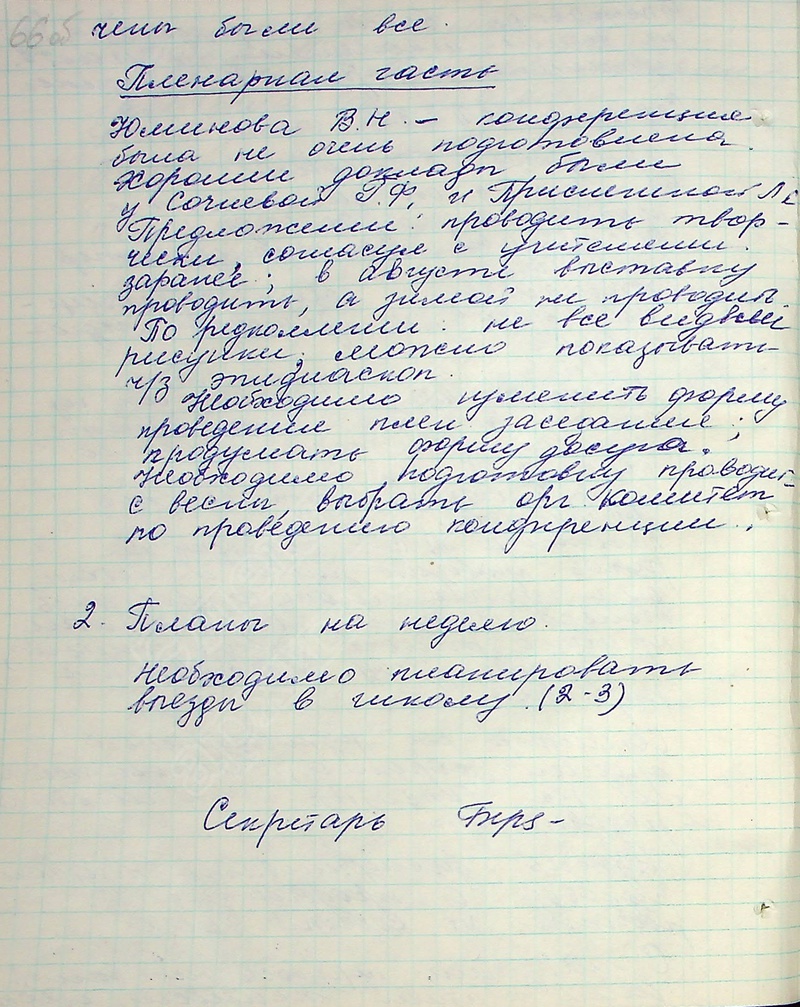 66об
чены были все.
Пленарная часть
Юминова В.Н. – конференция
была не очень подготовлена.
Хорошие доклады были
у Сочневой Г.Ф. и
Предложения: проводить твор-
чески, согласуя с учителями
заранее; в августе выставку
проводить, а зимой не проводить.
По редколлегии: не все видели
рисунки; можно показывать
ч/з эпидиаскоп.
Необходимо изменить форму
проведения плен. заседания;
продумать форму досуга.
Необходимо подготовку проводить
с весны, выбрать орг. комитет
по проведению конференции.
2. Планы на неделю.
Необходимо планировать
выезды в школу. (2-3)
Секретарь